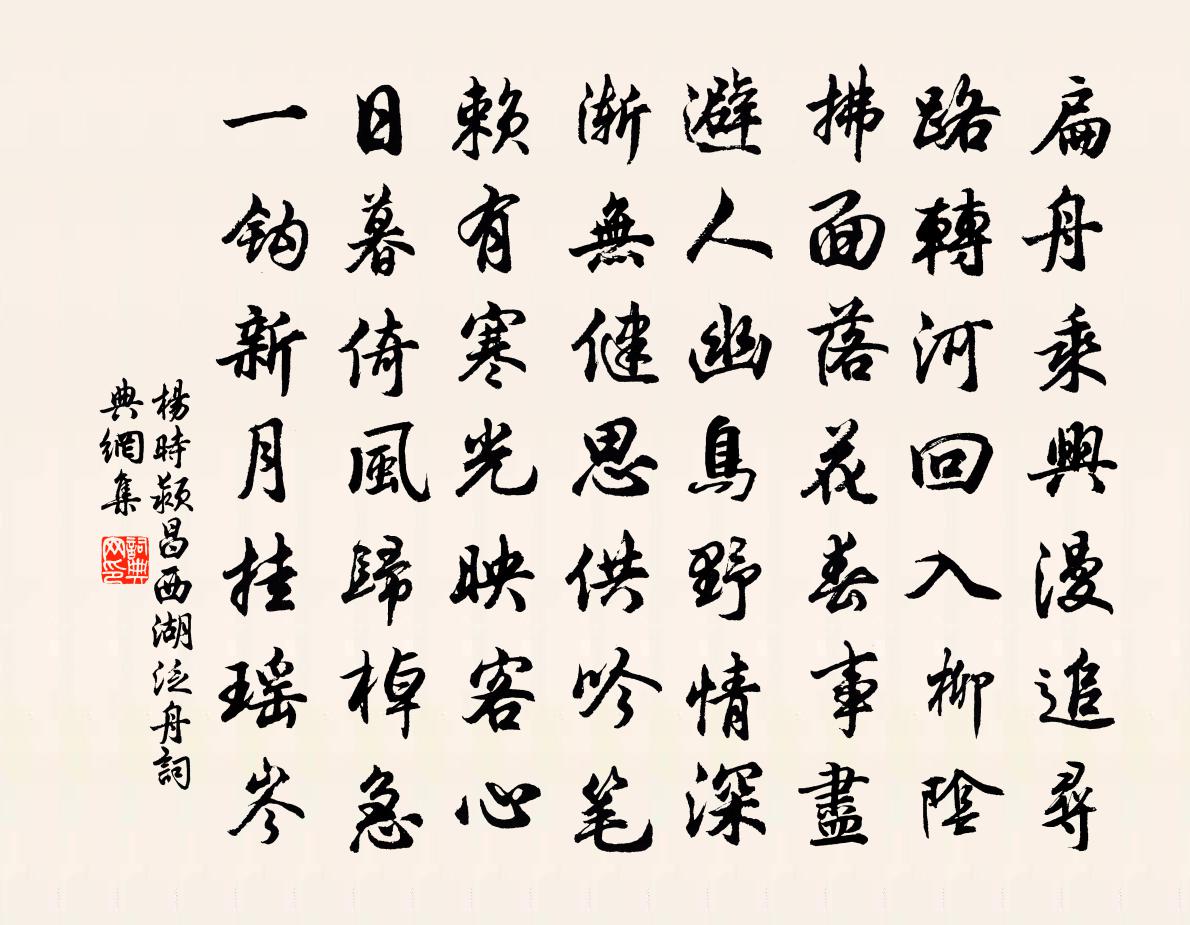 扁舟乘興漫追尋
路轉河回入柳陰
拂面落花春事盡
避人幽鳥野情深
漸無健思供吟笔
賴有寒光映客心
日暮倚風歸棹急
一鈎新月挂瑶岑
楊時潁昌西湖泛舟詞
典網集
詞典
网印